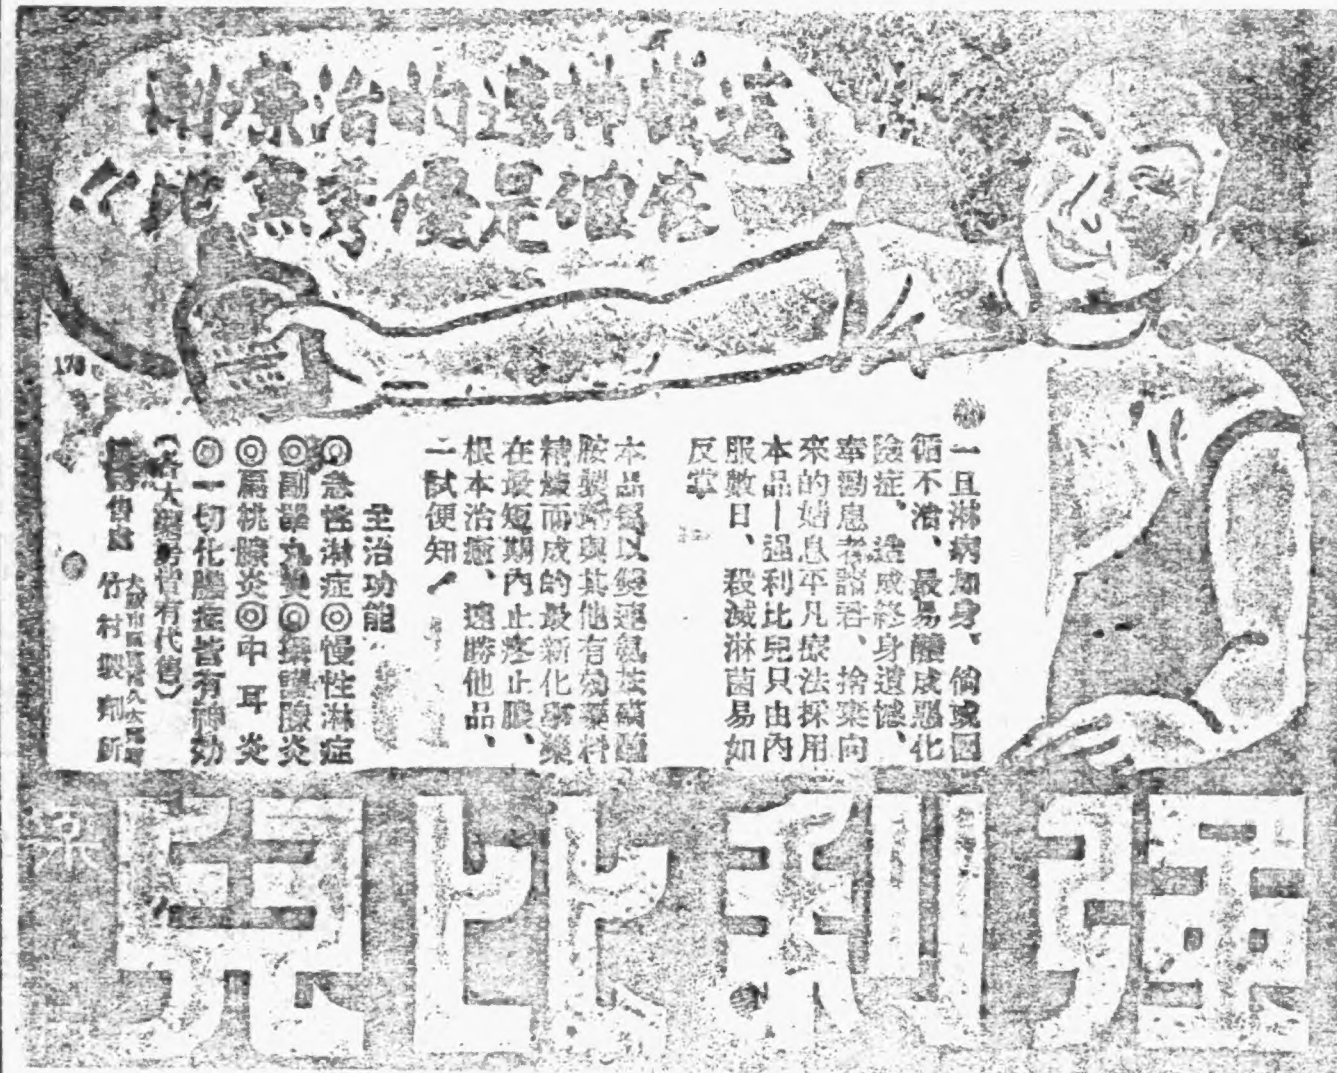 這藥神速的治療劑
確是優秀無比
一旦淋病加身、倘或因
循不治、最易釀成惡化
險症、造成終身遺憾、
奉勸患者諸君、捨棄向
來的姑息平凡療法採用
本品—强利比兒只由內
服數日、殺滅淋菌易如
反掌
本品係以
胺製劑與其他有効藥料
精煉而成的最新化學藥
在最短期內止疼止膿、
根本治癒、遠勝他品、
一試便知
主治功能
◎急性淋症◎慢性淋症
◎副睪丸炎◎攝護腺炎
◎扁桃腺炎◎中耳炎
◎一切化膿症皆有神効
(各大藥房皆有代售)
竹村製劑所
强利比兒